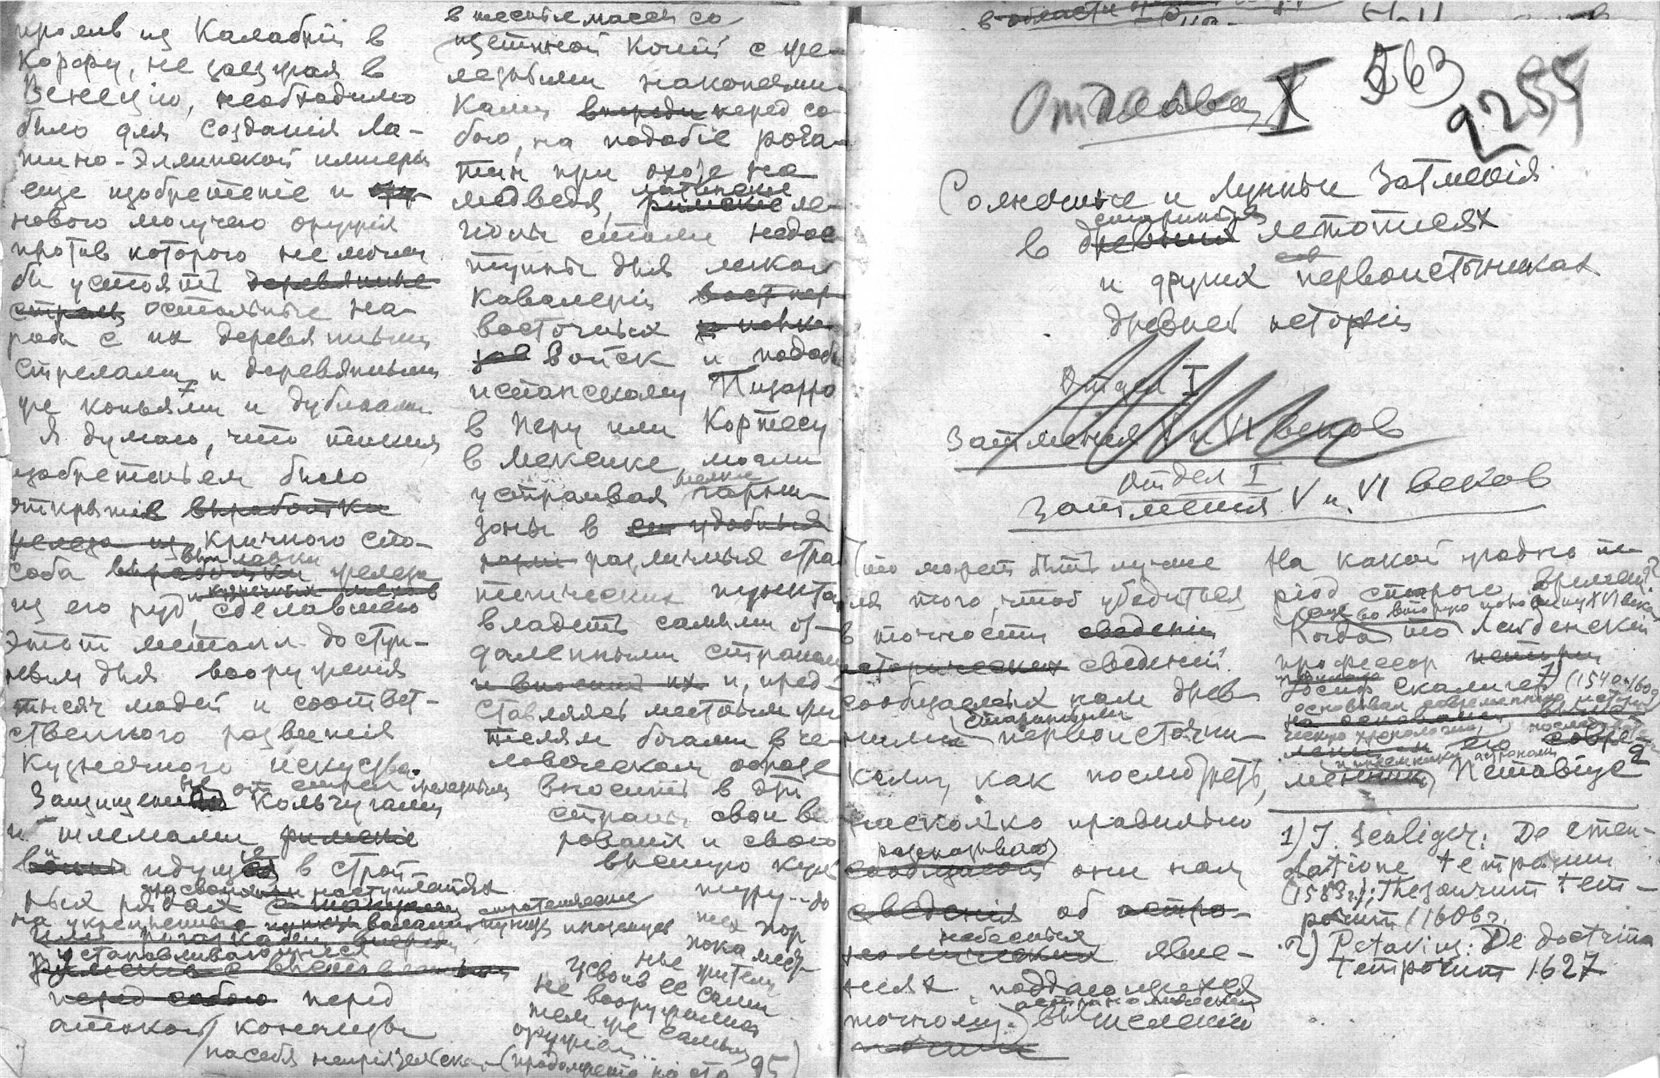 пролив из Калабрии в
Корфу, не заезжая в
Венецию, необходимо
было для создания ла-
тино-эллинской империи
еще изобретение и
нового могучего оружия
против которого не могли
бы устоять деревянные
стрелы остальные на-
роды с их деревянными
стрелами и деревянными
же копьями и дубинами
Я думаю, что таким
изобретеньем было
открытие выработки
железа из кричного спо-
соба выработки выплавки железа
из его руд, сделавшего
этот металл доступ-
ным для вооружения
тысяч людей и соответ-
ственного развития
кузнечного искусства.
Защищен от стрел железными
кольчугами
и шлемами римские
воины идущ в строй-
ных рядах
на укрепленные
устанавливающиеся
перед собою перед
атакой конницы
на себя неприятельской
в тесные массы со
щетиной копий с же-
лезными наконечни-
ками впереди перед со-
бою, на подобие рога-
тин при охоте на
медведя, латинские римские ле-
гионы стали недос-
тупны для легкой
кавалерии
восточных
войск и подобно
испанскому Пизарро
в Перу или Кортесу
в Мексике, могли
устраивая мелкие гарни-
зоны в удобных
разных стра-
тегических пунктах
владеть самыми от-
даленными странами
и вносить их и, пред-
ставляясь местным жи-
телям богами в че-
ловеческом образе
вносить в эти
страны свои ве-
рования и свою
высшую куль-
туру... до
тех пор
пока мест-
ные жители
усвоив ее сами
не вооружались
тем же самым
оружием..
(продолжение на стр 95)
Отдел Глава X 563
2255
Солнечные и лунные затмения
в древних старинных летописях
и других первоисточниках
древней истории
Отдел I
Затмения V и VI веков
Отдел I
Затмения V и VI веков
Что может быть лучше
для того, чтоб убедиться
в точности сведений
исторических сведений
сообщаемых нам древ-
ними старинными первоисточни-
ками, как посмотреть,
насколько правильно
рассказывают
сообщают они нам
сведения об астро-
номических небесных явле-
ниях поддающихся
астрономическому
точному вычислению
На какой угодно пе-
риод старого времени?
Еще во вторую половину XVI века
Когда то Лейденский
профессор истории
Иосиф Скалигер 1) (1540-1609
основал современную истори-
ческую хронологию, а
его совре-
менник Петавиус 2
1) J. Scaliger: De emen-
datione temporum
(1583 г.); Thesaurum tem-
porum (1606 г.
2) Petavius: De doctrina
temporum 1627